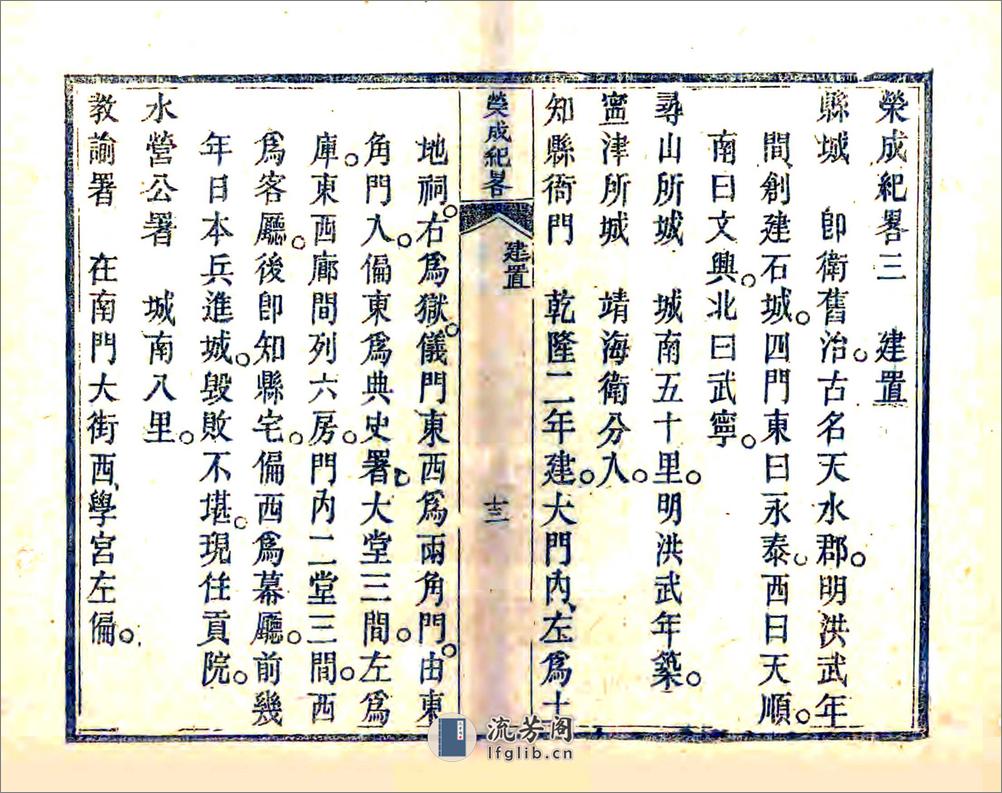 榮成紀畧三　建置
縣城　卽衛舊治。古名天水郡。明洪武年
間、創建石城。四門東曰永泰。西曰天順。
南曰文興。北曰武寧。
尋山所城　城南五十里。明洪武年築。
寗津所城　靖海衛分入。
知縣衙門　乾隆二年建。大門內、左爲土
榮成紀畧
建置
十三
地祠。右爲獄。儀門東西爲兩角門。由東
角門入。偏東爲典史署。大堂三間。左爲
庫。東西廊間列六房。門內二堂三間。西
爲客廳。後卽知縣宅。偏西爲幕廳。前幾
年日本兵進城。毀敗不堪。現任貢院。
水營公署　城南八里。
教諭署　在南門大街西、學宮左偏。
流芳阁
lfglib.cn